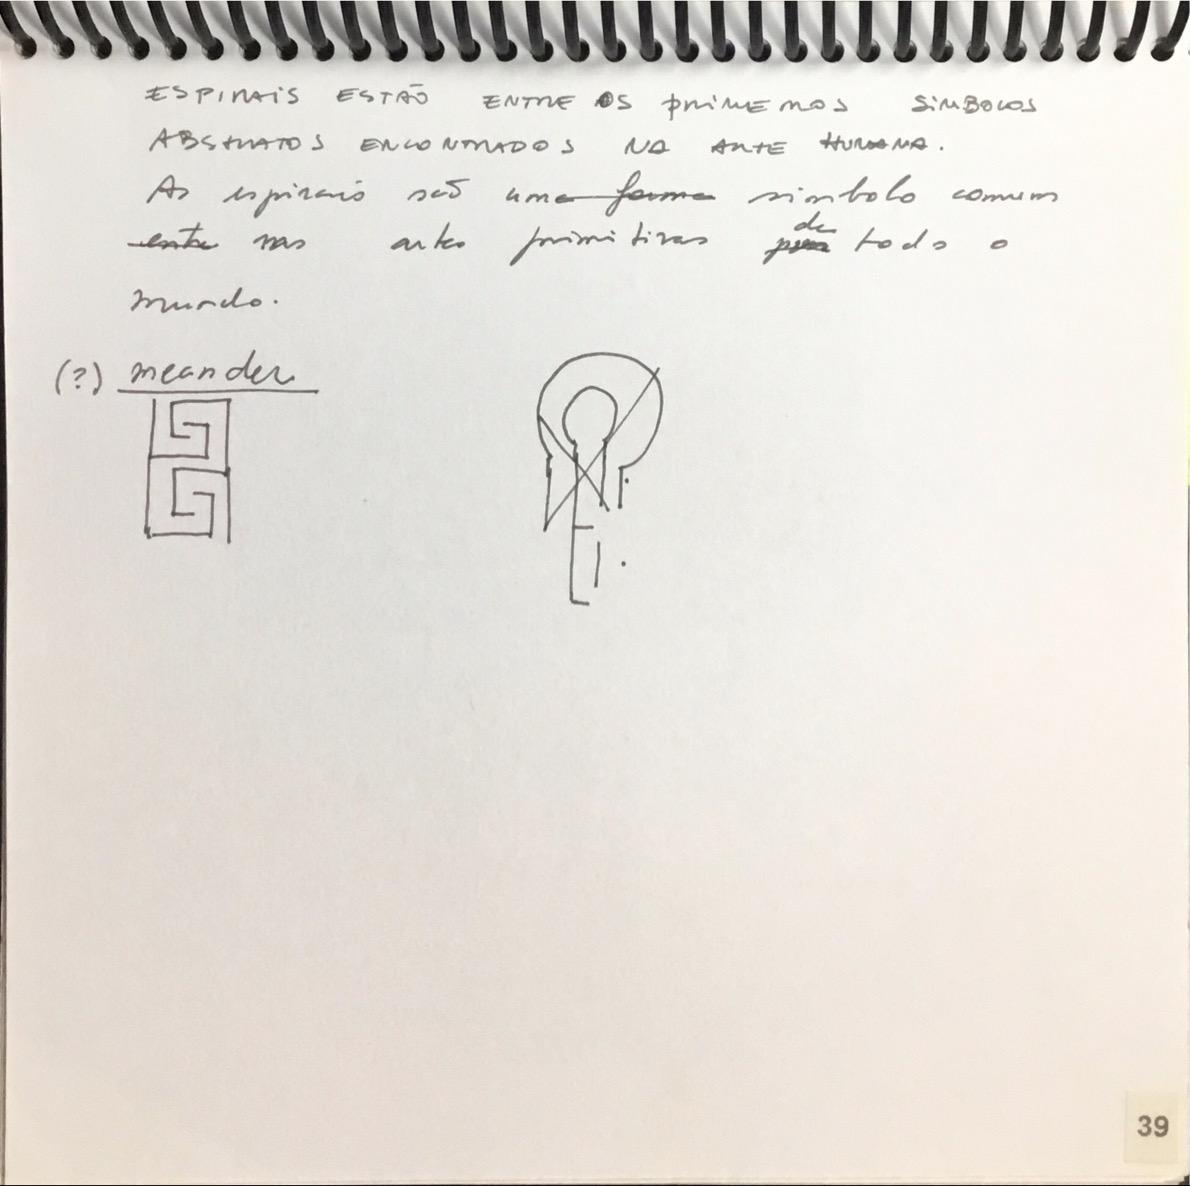 ESPIRAIS ESTÃO ENTRE OS PRIMEIROS SIMBOLOS
ABSTRATOS ENCONTRADOS NA ARTE HUMANA.
As espirais são uma forma simbolo comum
entre nas artes primitivas de todo o
mundo.
(?) meander
39